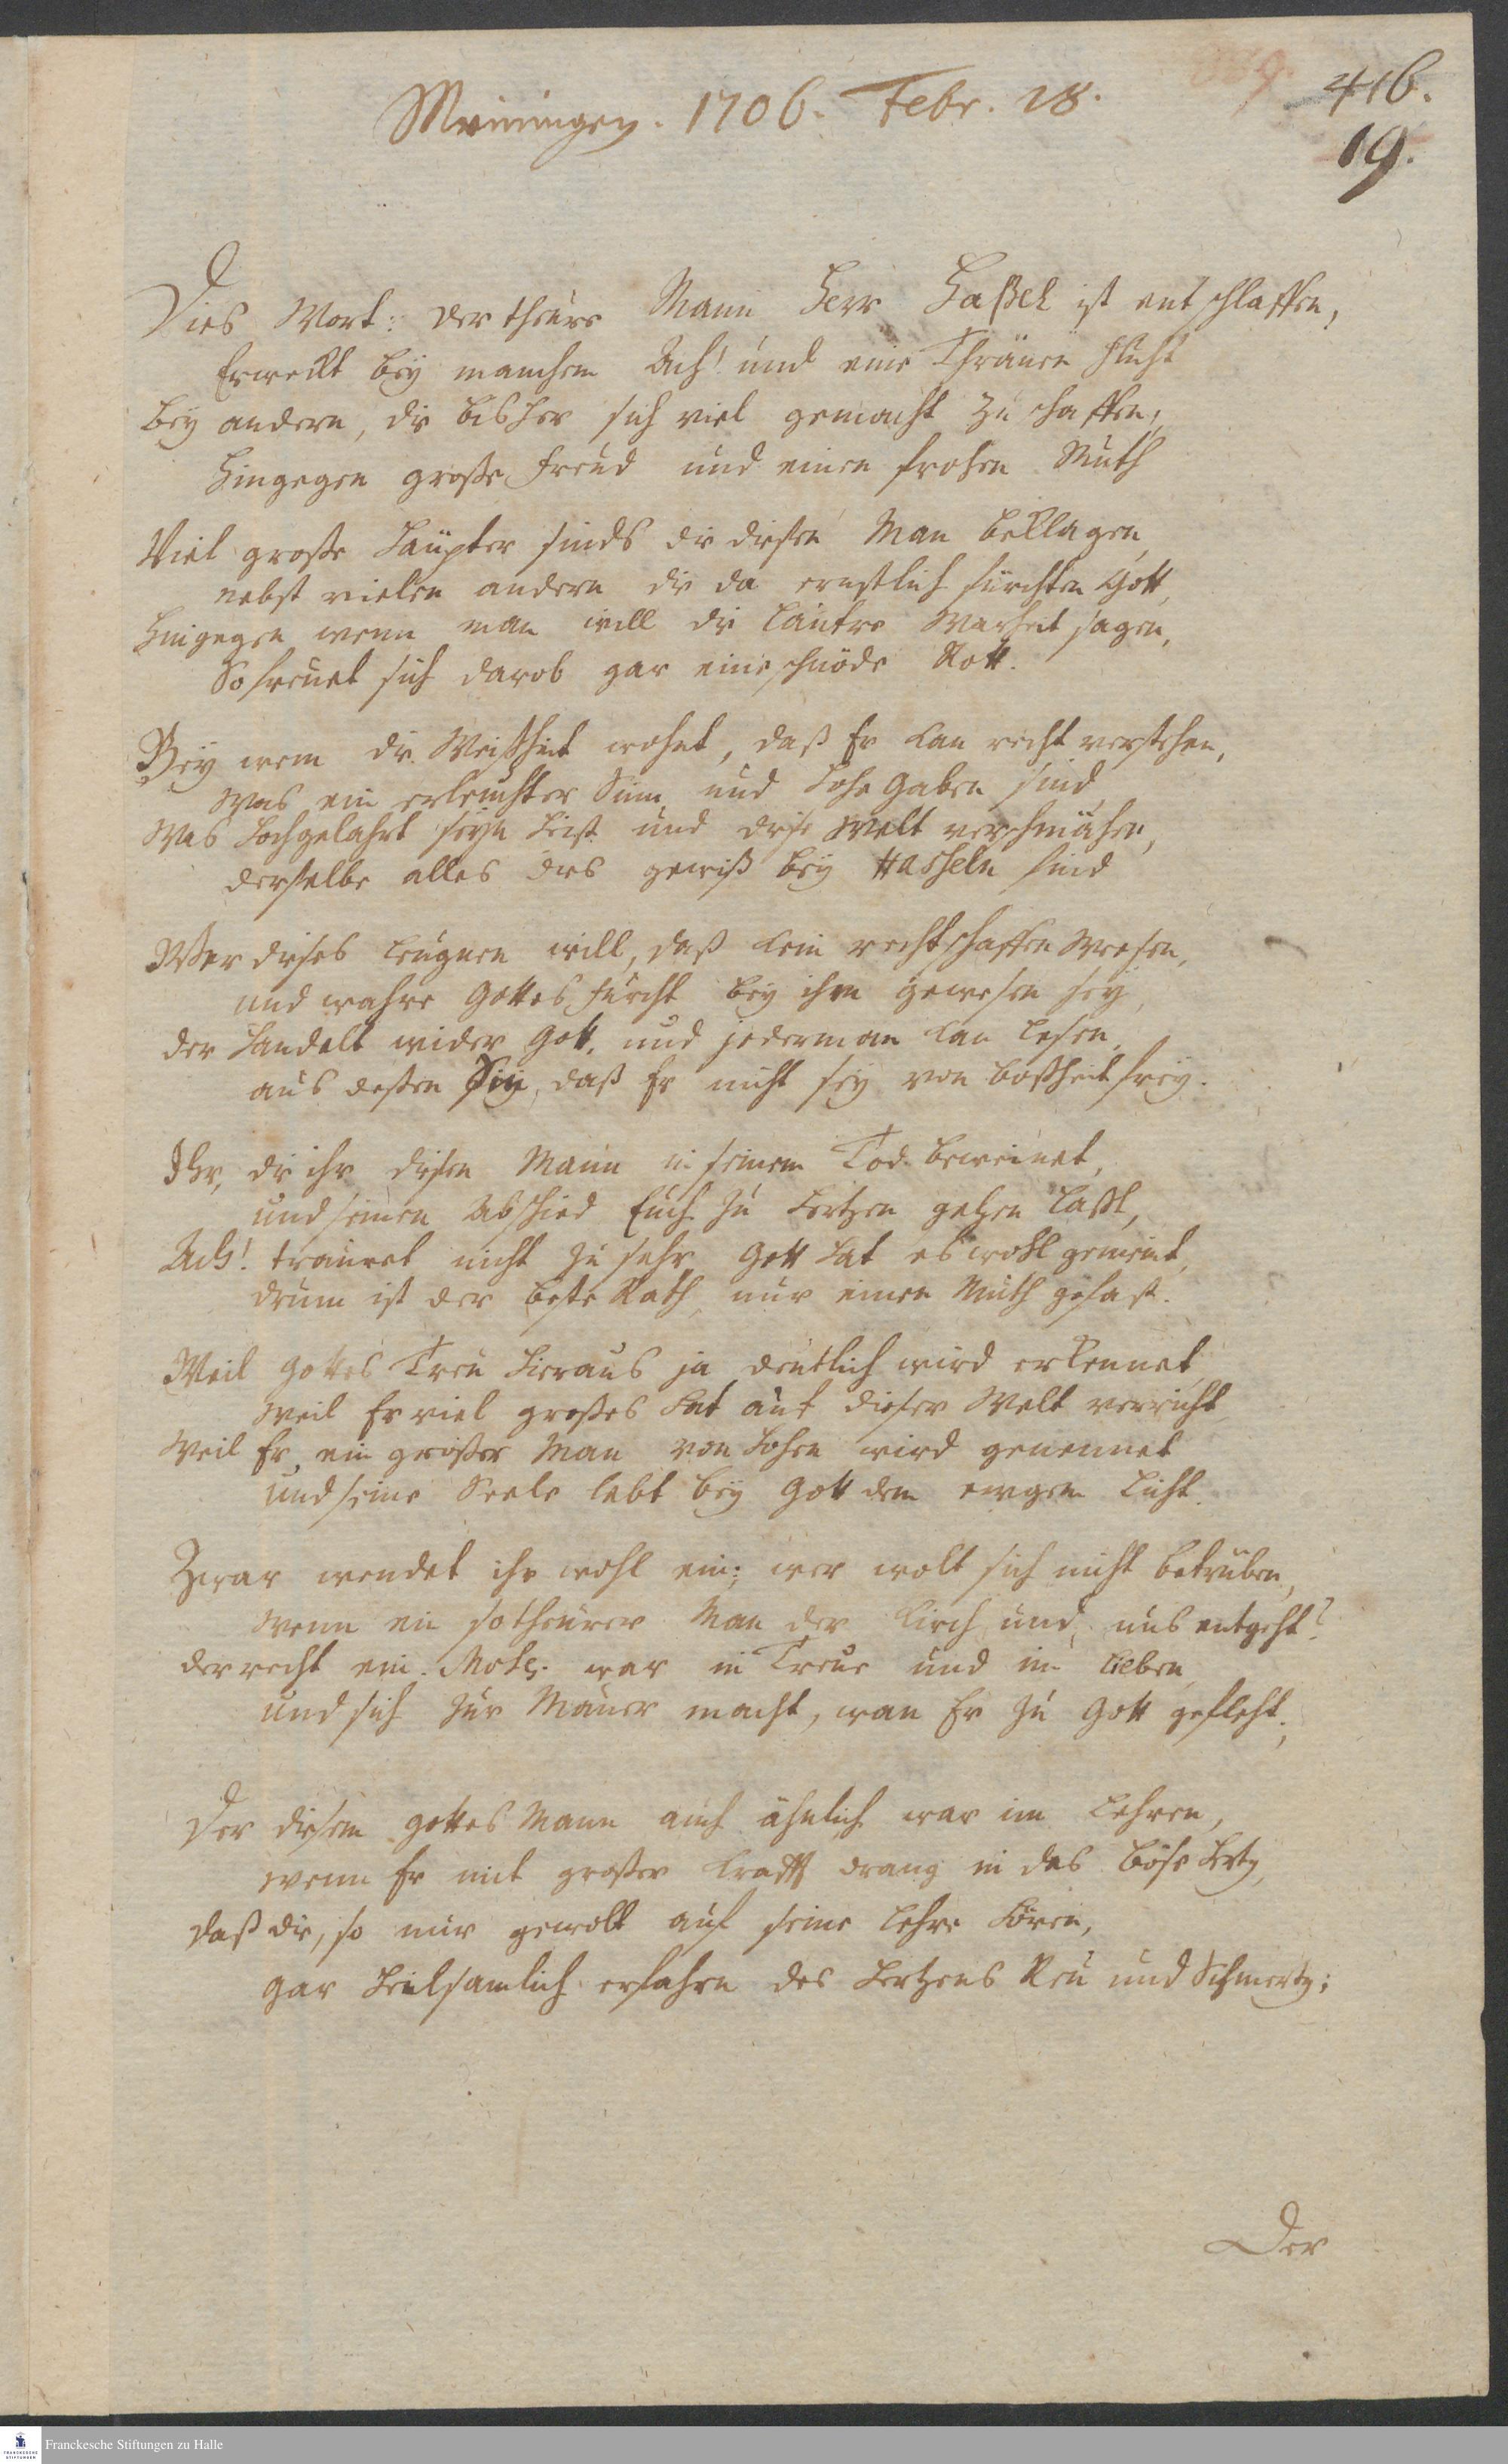 Meiningen. 1706. Febr. 18.
416.
19.
Dies Wort: der theure Mann Herr Haßel ist entschlaffen,
Erweckt bey manchem Ach! und eine Thränen Fluht
bey andern, die bisher sich viel gemacht zu schaffen,
Hingegen große Freud und einen frohen Muth
Viel große Häupter sinds die diesen Man beklagen,
nebst vielen andern die da ernstlich fürchten Gott,
Hingegen wenn man will die lautre Warheit sagen,
So freuet sich darob gar eine schnöde Rott.
Bey wem die Weißheit wohnt, daß Er kan recht verstehen,
Was ein erleuchter Sinn und hohe Gaben sind
Was hochgelahrt seyn heist und diese Welt verschmähen,
derselbe alles des gewiß bey Hasseln find
Wer dieses leugnen will, daß kein rechtschaffen Wesen,
und wahre Gottes furcht bey ihm gewesen sey,
der handelt wider Gott, und jederman kan lesen,
aus deßen Sin, daß Er nicht sey von boßheit frey.
Ihr, die ihr diesen Mann in seinem Tod beweinet,
und seinen Abschied Euch zu hertzen gehen laßt,
Ach! trauret nicht zu sehr, Gott hat es wohl gemeint,
drum ist der beste Rath, nur einen Muth gefast.
Weil Gottes Treu hieraus ja deutlich wird erkennet,
Weil Er viel großes hat auf dieser Welt verricht
Weil Er, ein großer Man von hohen wird genennet
und seine Seele lebt bey Gott dem ewgen Licht.
Zwar wendet ihr wohl ein; wer wolt sich nicht betrüben,
Wenn ein so theurer Man der Kirch und uns entgeht?
der recht ein Mose war in Treue und im lieben,
und sich zur Mauer macht, wan Er zu Gott gefleht;
Der diesem Gottes Mann auch ähnlich war im Lehren,
wenn Er mit großer Krafft drang in das böse Hertz,
daß die, so nur gewolt auf seine Lehre hören,
gar heilsamlich erfahren des Hertzens Reu und Schmertz;
Der
Franckesche Stiftungen zu Halle